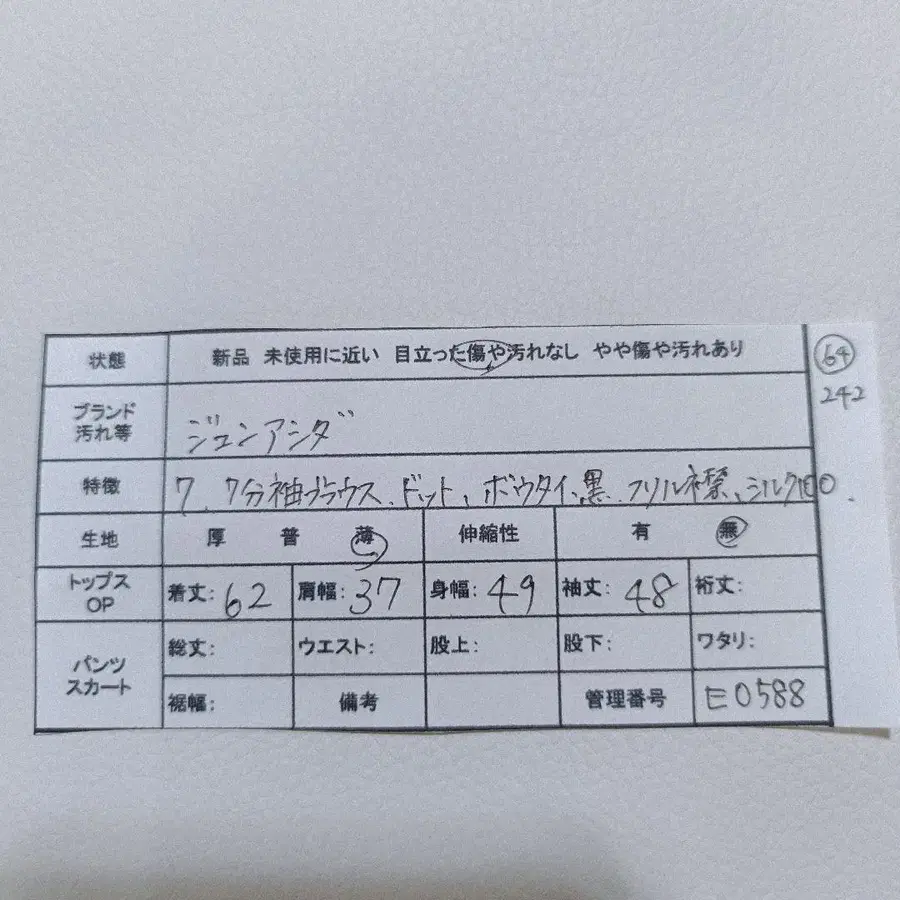 状態 新品 未使用に近い 目立った傷や汚れなし やや傷や汚れあり 64
242
ブランド
汚れ等 ジュンアシダ
特徴 7、7分袖ブラウス、ドット、ボウタイ、黒、フリル襟、シルク100、
生地 厚 普 薄 伸縮性 有 無
トップス
OP 着丈: 62 肩幅: 37 身幅: 49 袖丈: 48 裄丈:
パンツ
スカート 総丈: ウエスト: 股上: 股下: ワタリ:
裾幅: 備考 管理番号 E0588